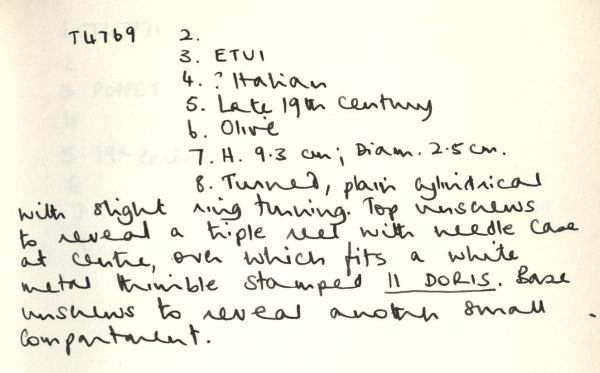 T4769 2.
3. ETUI
4. ? Italian
5. Late 19th century
6. Olive
7. H. 9.3 cm; Diam. 2.5 cm.
8. Turned, plain cylindrical
with slight ring turning. Top unscrews
to reveal a triple reel with needle case
at centre, over which fits a white
metal thimble stamped 11 DORIS. Base
unscrews to reveal another small
compartment.